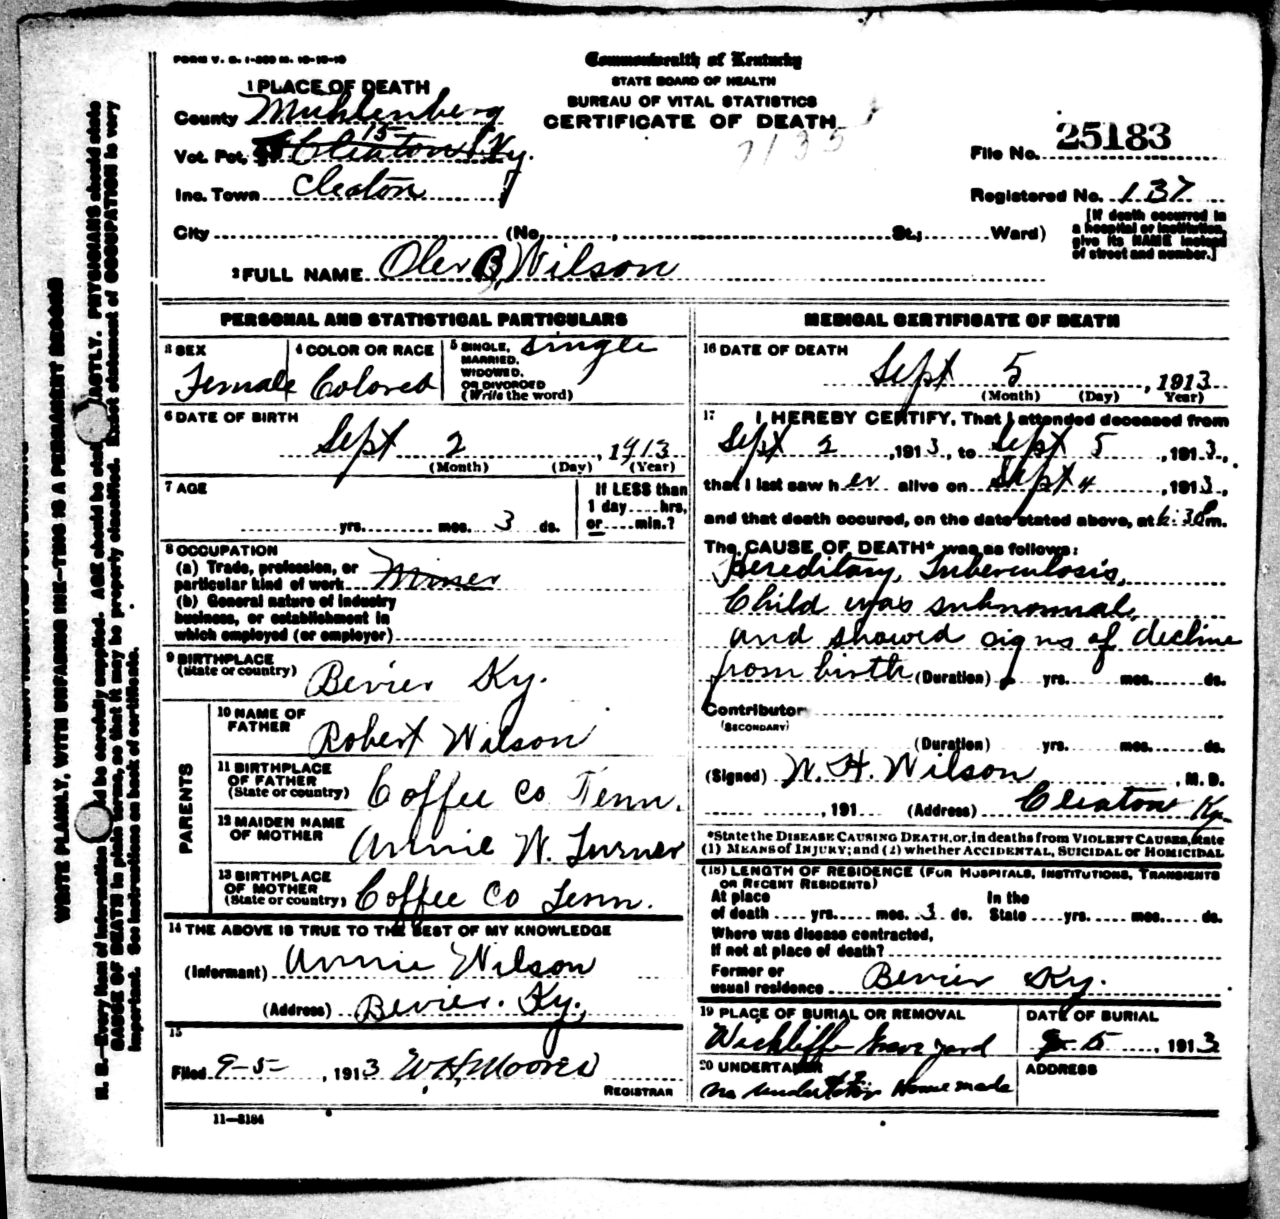 FORM V. S. 1-500 M. 10-10-10
Commonwealth of Kentucky
STATE BOARD OF HEALTH
BUREAU OF VITAL STATISTICS
CERTIFICATE OF DEATH
7135
1 PLACE OF DEATH
County Muhlenberg
Vot. Pct. 15 Cleaton Ky.
Inc. Town Cleaton
City (No. , St.; Ward)
File No. 25183
Registered No. 137
[If death occurred in
a hospital or institution,
give its NAME instead
of street and number.]
2 FULL NAME Oler B. Wilson
PERSONAL AND STATISTICAL PARTICULARS
3 SEX
Female
4 COLOR OR RACE
Colored
5 SINGLE,
MARRIED,
WIDOWED,
OR DIVORCED
(Write the word)
single
6 DATE OF BIRTH
Sept 2, 1913
(Month) (Day) (Year)
7 AGE
yrs. mos. 3 ds.
If LESS than
1 day....hrs,
or....min.?
8 OCCUPATION
(a) Trade, profession, or
particular kind of work Miner
(b) General nature of industry
business, or establishment in
which employed (or employer)
9 BIRTHPLACE
(State or country) Bevier Ky.
PARENTS
10 NAME OF
FATHER Robert Wilson
11 BIRTHPLACE
OF FATHER
(State or country) Coffee Co Tenn.
12 MAIDEN NAME
OF MOTHER Annie W. Turner
13 BIRTHPLACE
OF MOTHER
(State or country) Coffee Co Tenn.
14 THE ABOVE IS TRUE TO THE BEST OF MY KNOWLEDGE
(Informant) Annie Wilson
(Address) Bevier. Ky.
15
Filed 9-5-, 1913 W.H. Moores
REGISTRAR
11-3184
MEDICAL CERTIFICATE OF DEATH
16 DATE OF DEATH
Sept 5, 1913
(Month) (Day) Year)
17 I HEREBY CERTIFY, That I attended deceased from
Sept 2, 1913, to Sept 5, 1913,
that I last saw her alive on Sept 4, 1913,
and that death occured, on the date stated above, at 6:30 Pm.
The CAUSE OF DEATH* was as follows:
Hereditary Tuberculosis,
Child was subnormal,
and showed signs of decline
from birth (Duration) yrs. mos. ds.
Contributor
(SECONDARY)
(Duration) yrs. mos. ds.
(Signed) W. H. Wilson, M. D.
, 191 (Address) Cleaton Ky.
*State the DISEASE CAUSING DEATH, or, in deaths from VIOLENT CAUSES, state
(1) MEANS of INJURY; and (2) whether ACCIDENTAL, SUICIDAL or HOMICIDAL
(18) LENGTH OF RESIDENCE (FOR HOSPITALS, INSTITUTIONS, TRANSIENTS
OR RECENT RESIDENTS)
At place In the
of death yrs. mos. 3 ds. State yrs. mos. ds.
Where was disease contracted,
If not at place of death?
Former or
usual residence Bevier Ky.
19 PLACE OF BURIAL OR REMOVAL
Wickliffe Grave yard
DATE OF BURIAL
9-5, 1913
20 UNDERTAKER
No undertaker Home made
ADDRESS
WRITE PLAINLY, WITH UNFADING INK—THIS IS A PERMANENT RECORD
N. B.—Every item of information should be carefully supplied. AGE should be stated EXACTLY. PHYSICIANS should state
CAUSE OF DEATH in plain terms, so that it may be properly classified. Exact statement of OCCUPATION is very
important. See instructions on back of certificate.